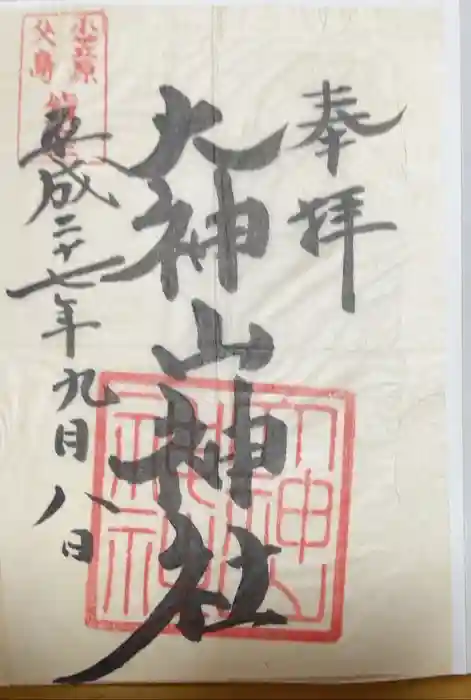 奉拝
大神山神社
平成二十七年九月八日
小笠原
父島